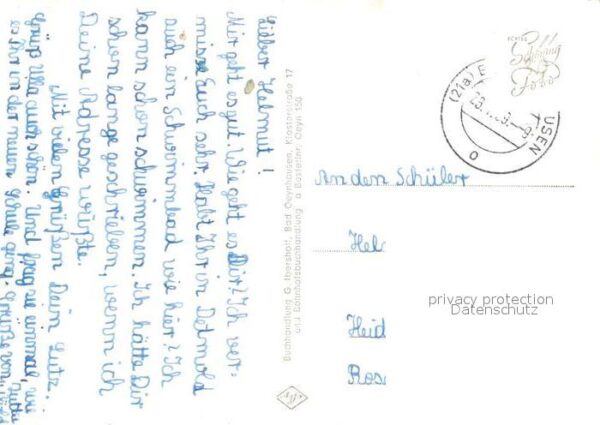 Lieber Helmut!
Mir geht es gut. Wie geht es Dir? Ich ver-
misse Euch sehr. Habt Ihr in Detmold
auch ein Schwimmbad wie hier? Ich
kann schon schwimmen. Ich hätte Dir
schon lange geschrieben, wenn ich
Deine Adresse wüßte.
Mit vielen Grüßen Dein Lutz.
Grüß Ulla auch schön. Und frag sie einmal, wie
es ihr in der neuen Schule geht. Grüße von
Buchhandlung G. Ibershoff, Bad Oeynhausen, Klosterstraße 17
und Bahnhofsbuchhandlung Oeyn 150
ECHTES
Foto
(21a)
USEN
An den Schüler
Hel
Heid
Rose
privacy protection
Datenschutz